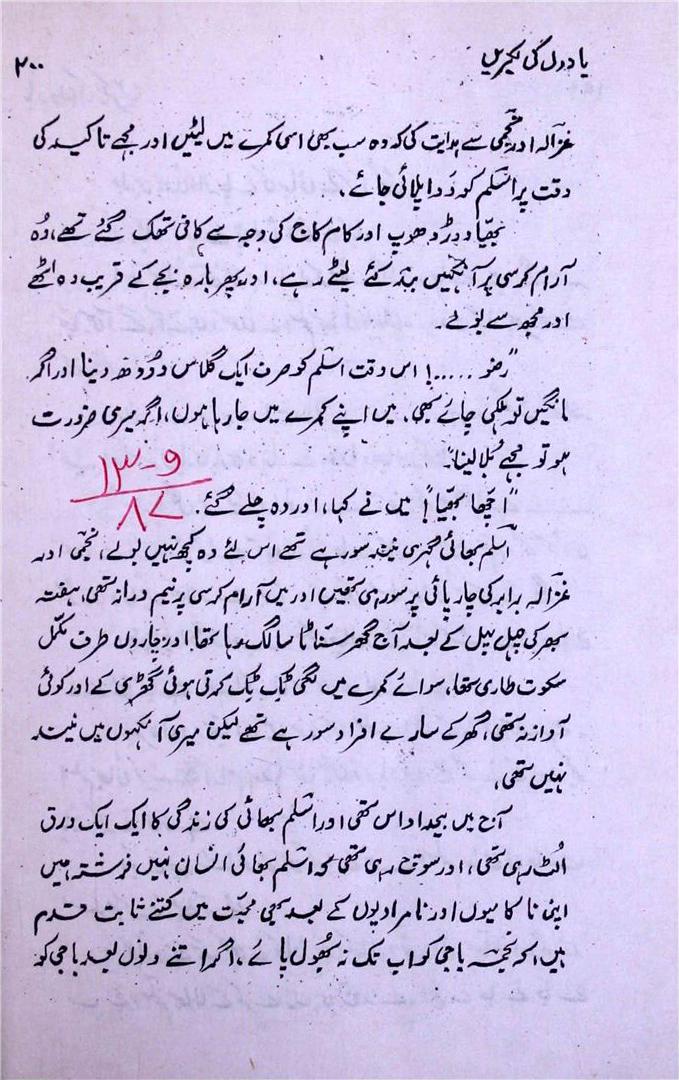 یادوں کی لکیریں
۲۰۰
غزالہ اور نجمی سے ہدایت کی کہ وہ سب بھی اسی کمرے میں لیٹیں اور مجھے تاکید کی
وقت پر اسلم کو دوا پلائی جائے،
بھیّا دوڑ دھوپ اور کام کاج کی وجہ سے کافی تھک گئے تھے، وہ
آرام کرسی پر آنکھیں بند کئے لیٹے رہے، اور پھر بارہ بجے کے قریب وہ اٹھے
اور مجھ سے بولے۔
"رضو .....! اس وقت اسلم کو صرف ایک گلاس دودھ دینا اور اگر
مانگیں تو ہلکی چائے بھی۔ میں اپنے کمرے میں جا رہا ہوں، اگر میری ضرورت
ہو تو مجھے بلا لینا۔"
۱۳-۹
۸۷
"اچھا بھیّا! میں نے کہا، اور وہ چلے گئے۔
اسلم بھائی گہری نیند سو رہے تھے اس لئے وہ کچھ نہیں بولے، نجمی اور
غزالہ برابر کی چارپائی پر سو رہی تھیں اور میں آرام کرسی پر نیم دراز تھی، ہفتہ
بھر کی چہل پہل کے بعد آج گھر سنّاٹا سا لگ رہا تھا۔ اور چاروں طرف مکمّل
سکوت طاری تھا، سوائے کمرے میں لگی ٹِک ٹِک کرتی ہوئی گھڑی کے اور کوئی
آواز نہ تھی، گھر کے سارے افراد سو رہے تھے لیکن میری آنکھوں میں نیند
نہیں تھی،
آج میں بیحد اداس تھی اور اسلم بھائی کی زندگی کا ایک ایک ورق
اُلٹ رہی تھی، اور سوچ رہی تھی کہ اسلم بھائی انسان نہیں فرشتہ ہیں
اپنی ناکامیوں اور نامرادیوں کے بعد بھی محبّت میں کتنے ثابت قدم
ہیں کہ نجمہ باجی کو اب تک نہ بھول پائے، اگر اتنے دنوں بعد باجی کو